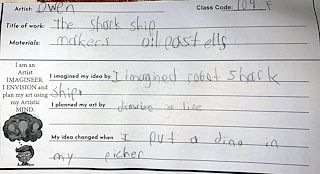 Artist: Owen Class Code: 104 F
Title of work: The shark ship
Materials: makers oilpastells
I am an
Artist
IMAGINEER.
I ENVISION and
plan my art using
my Artistic
MIND.
I imagined my idea by I imagined robot shack
ship.
I planned my art by drawing a line
My idea changed when I put a dino in
my picher